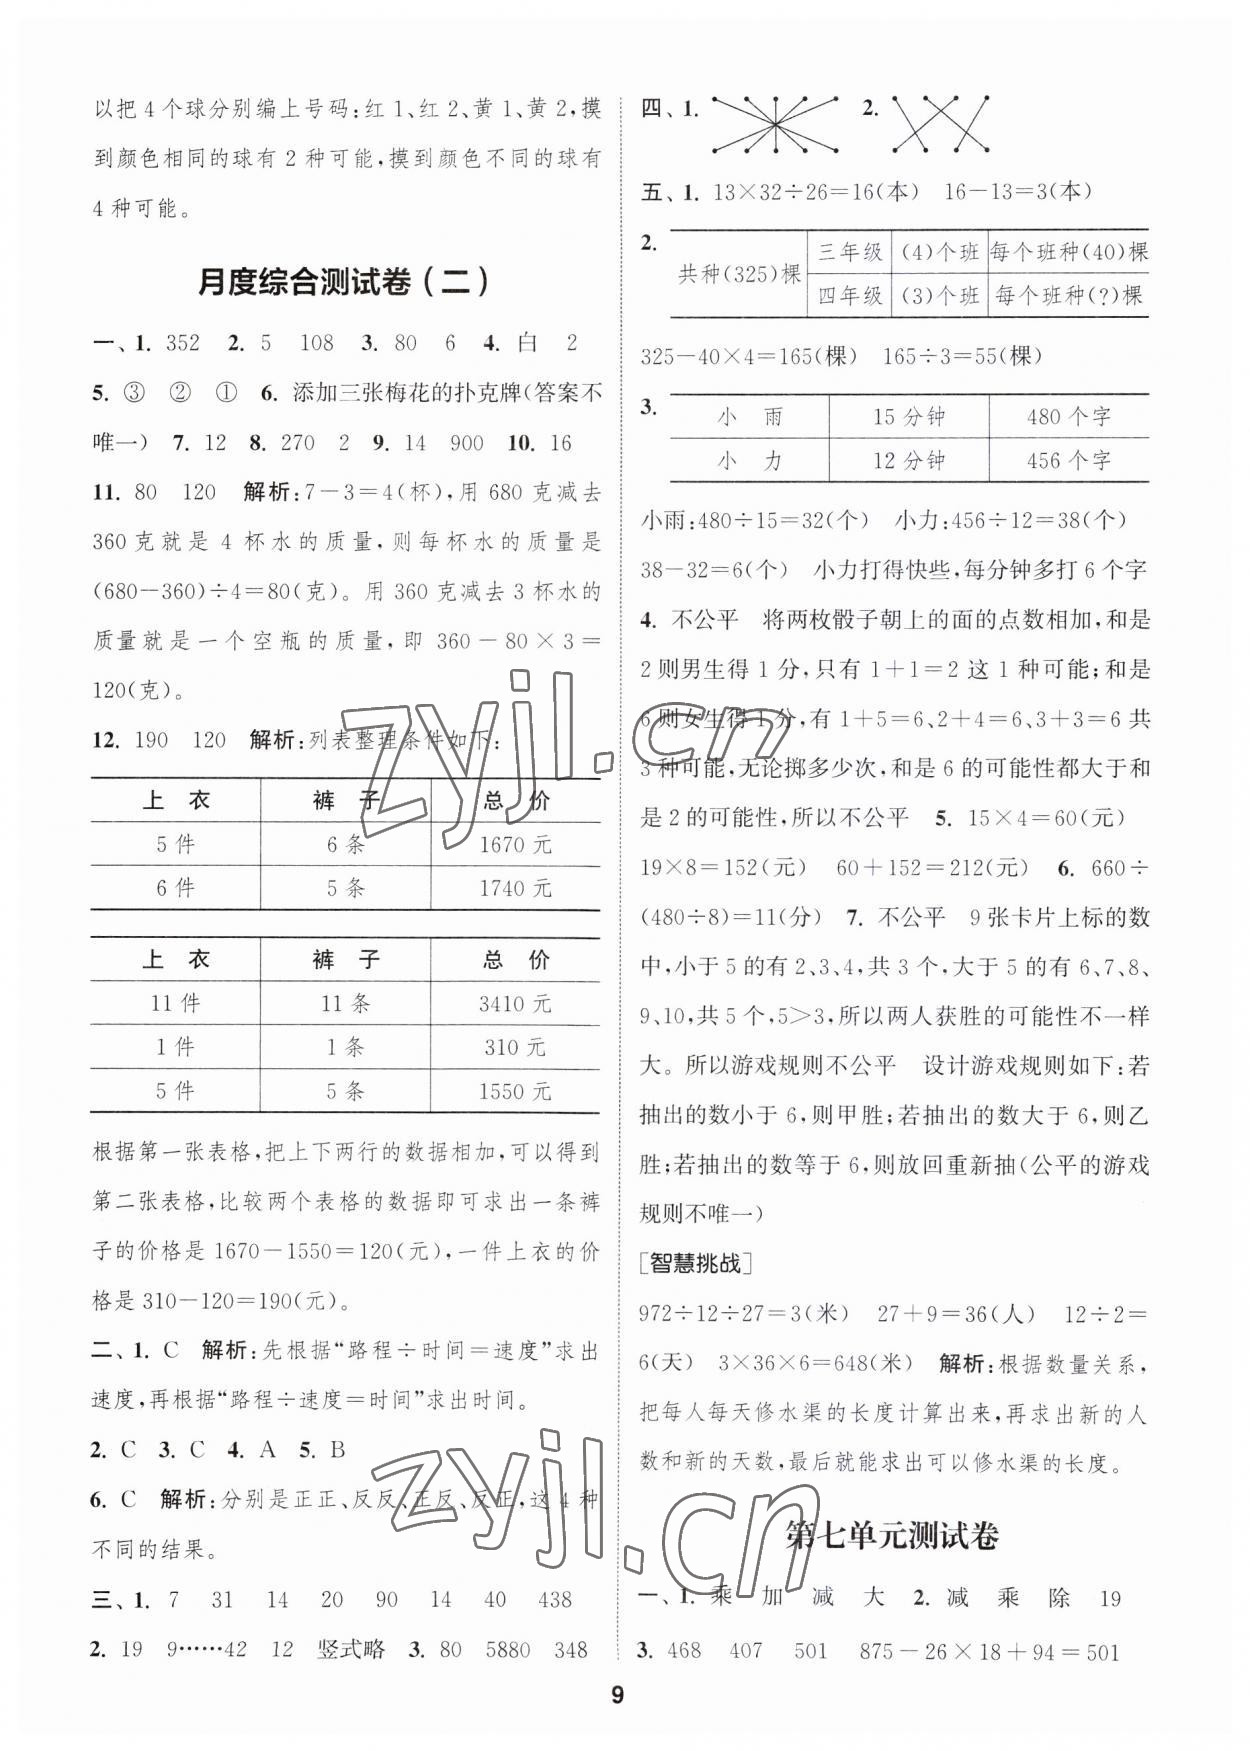 以把 4 个球分别编上号码:红 1、红 2、黄 1、黄 2,摸
到颜色相同的球有 2 种可能,摸到颜色不同的球有
4 种可能。
月度综合测试卷(二)
一、1. 352 2. 5 108 3. 80 6 4. 白 2
5. ③ ② ① 6. 添加三张梅花的扑克牌(答案不
唯一) 7. 12 8. 270 2 9. 14 900 10. 16
11. 80 120 解析:7-3=4(杯),用 680 克减去
360 克就是 4 杯水的质量,则每杯水的质量是
(680-360)÷4=80(克)。用 360 克减去 3 杯水的
质量就是一个空瓶的质量,即 360-80×3=
120(克)。
12. 190 120 解析:列表整理条件如下:
上 衣 裤 子 总 价
5 件 6 条 1670 元
6 件 5 条 1740 元
上 衣 裤 子 总 价
11 件 11 条 3410 元
1 件 1 条 310 元
5 件 5 条 1550 元
根据第一张表格,把上下两行的数据相加,可以得到
第二张表格,比较两个表格的数据即可求出一条裤
子的价格是 1670-1550=120(元),一件上衣的价
格是 310-120=190(元)。
二、1. C 解析:先根据“路程÷时间=速度”求出
速度,再根据“路程÷速度=时间”求出时间。
2. C 3. C 4. A 5. B
6. C 解析:分别是正正、反反、正反、反正,这 4 种
不同的结果。
三、1. 7 31 14 20 90 14 40 438
2. 19 9……42 12 竖式略 3. 80 5880 348
四、1. 2.
五、1. 13×32÷26=16(本) 16-13=3(本)
2. 共种(325)棵 三年级 (4)个班 每个班种(40)棵
四年级 (3)个班 每个班种(?)棵
325-40×4=165(棵) 165÷3=55(棵)
3. 小 雨 15 分钟 480 个字
小 力 12 分钟 456 个字
小雨:480÷15=32(个) 小力:456÷12=38(个)
38-32=6(个) 小力打得快些,每分钟多打 6 个字
4. 不公平 将两枚骰子朝上的面的点数相加,和是
2 则男生得 1 分,只有 1+1=2 这 1 种可能;和是
6 则女生得 1 分,有 1+5=6、2+4=6、3+3=6 共
3 种可能,无论掷多少次,和是 6 的可能性都大于和
是 2 的可能性,所以不公平 5. 15×4=60(元)
19×8=152(元) 60+152=212(元) 6. 660÷
(480÷8)=11(分) 7. 不公平 9 张卡片上标的数
中,小于 5 的有 2、3、4,共 3 个,大于 5 的有 6、7、8、
9、10,共 5 个,5>3,所以两人获胜的可能性不一样
大。所以游戏规则不公平 设计游戏规则如下:若
抽出的数小于 6,则甲胜;若抽出的数大于 6,则乙
胜;若抽出的数等于 6,则放回重新抽(公平的游戏
规则不唯一)
[智慧挑战]
972÷12÷27=3(米) 27+9=36(人) 12÷2=
6(天) 3×36×6=648(米) 解析:根据数量关系,
把每人每天修水渠的长度计算出来,再求出新的人
数和新的天数,最后就能求出可以修水渠的长度。
第七单元测试卷
一、1. 乘 加 减 大 2. 减 乘 除 19
3. 468 407 501 875-26×18+94=501
9
zyjl.cn
zyjl.cn